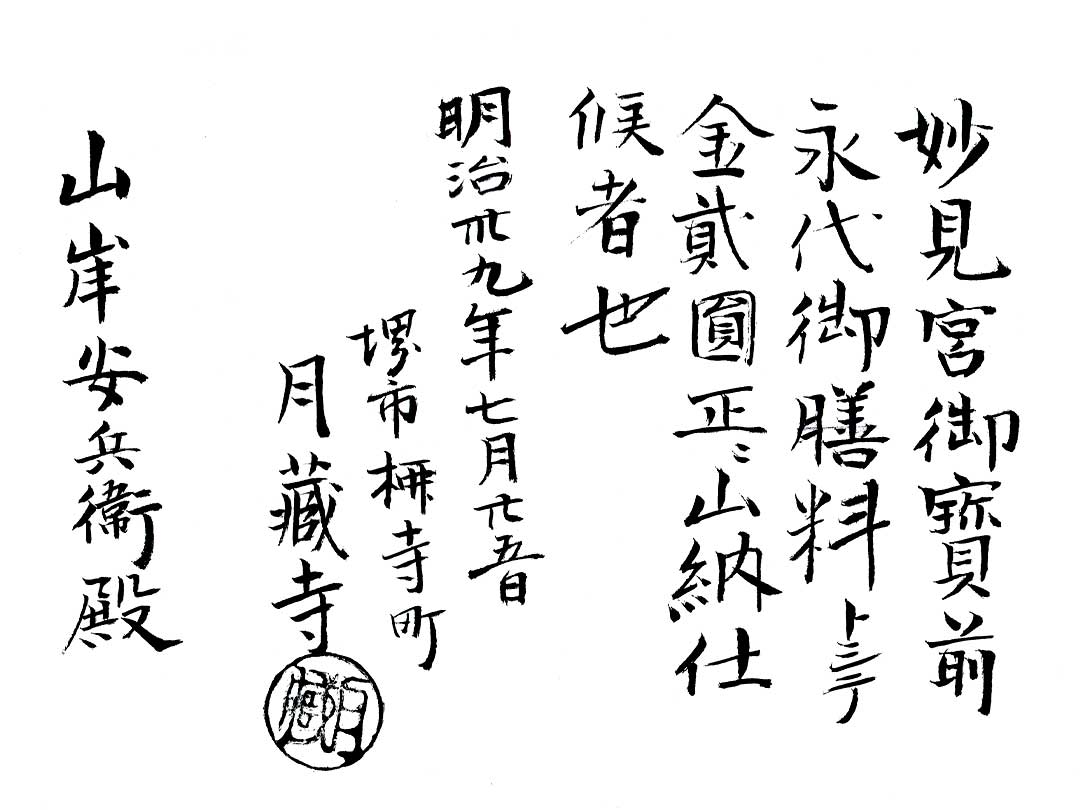 妙見宮御寳前
永代御膳料トシテ
金貳圓正ニ山納仕
候者也
明治卅九年七月廿五日
堺市柳寺町
月藏寺
山岸安兵衛殿